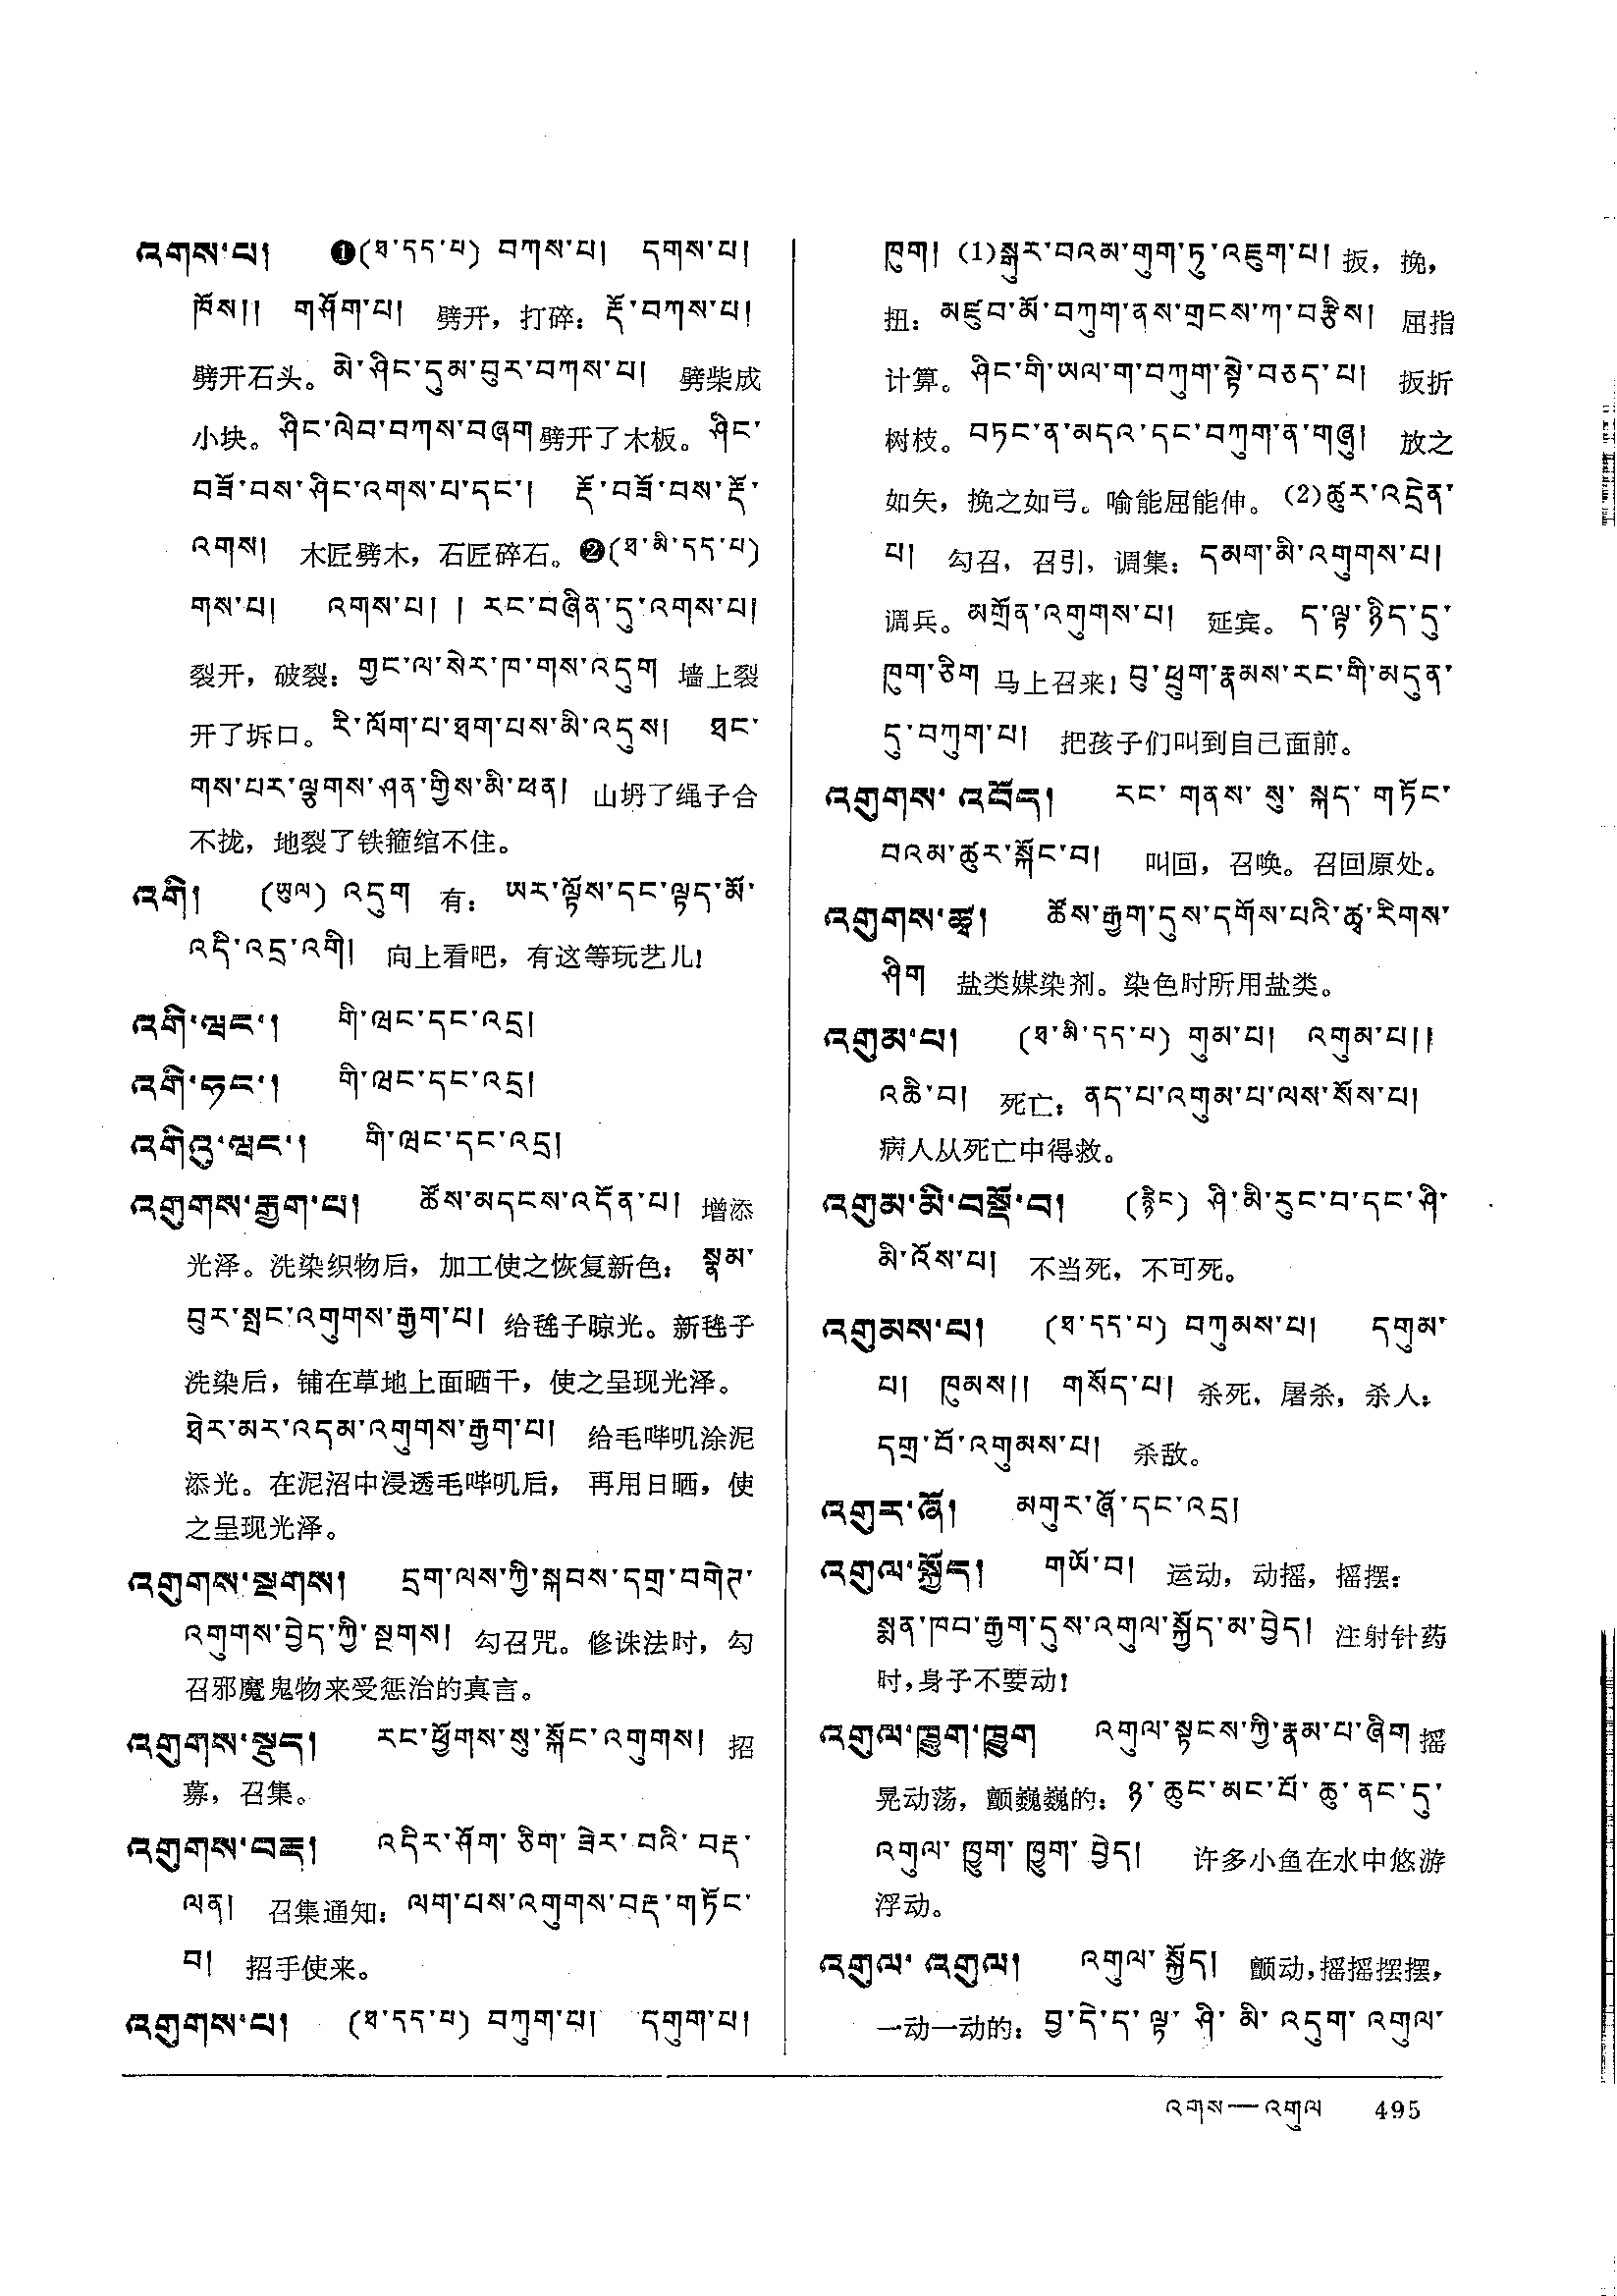 འགས་པ། ❶(ཐ་དད་པ) བཀས་པ། དགས་པ།
ཁོས།། གཤོག་པ། 劈开，打碎：རྡོ་བཀས་པ།
劈开石头。མེ་ཤིང་དུམ་བུར་བཀས་པ། 劈柴成
小块。ཤིང་ལེབ་བཀས་བཞག 劈开了木板。ཤིང་
བཟོ་བས་ཤིང་འགས་པ་དང་། རྡོ་བཟོ་བས་རྡོ་
འགས། 木匠劈木，石匠碎石。❷(ཐ་མི་དད་པ)
གས་པ། འགས་པ། ། རང་བཞིན་དུ་འགས་པ།
裂开，破裂：གྱང་ལ་སེར་ཁ་གས་འདུག 墙上裂
开了坼口。རི་ལོག་པ་ཐག་པས་མི་འདུས། ཐང་
གས་པར་ལྕགས་ཤན་གྱིས་མི་ཕན། 山坍了绳子合
不拢，地裂了铁箍绾不住。
འགི། (ཡུལ) འདུག 有：ཡར་ལྟོས་དང་ལྟད་མོ་
འདི་འདྲ་འགི། 向上看吧，有这等玩艺儿！
འགི་ལྜྷང་། གི་ལྜྷང་དང་འདྲ།
འགི་ཧང་། གི་ལྜྷང་དང་འདྲ།
འགིའུ་ལྜྷང་། གི་ལྜྷང་དང་འདྲ།
འགུགས་རྒྱག་པ། ཚོས་མདངས་འདོན་པ། 增添
光泽。洗染织物后，加工使之恢复新色：སྣམ་
བུར་སྤང་འགུགས་རྒྱག་པ། 给氆子晾光。新氆子
洗染后，铺在草地上面晒干，使之呈现光泽。
ཐེར་མར་འདམ་འགུགས་རྒྱག་པ། 给毛哔叽涂泥
添光。在泥沼中浸透毛哔叽后， 再用日晒，使
之呈现光泽。
འགུགས་སྔགས། དྲག་ལས་ཀྱི་སྐབས་དགྲ་བགེཊ་
འགུགས་བྱེད་ཀྱི་སྔགས། 勾召咒。修诛法时，勾
召邪魔鬼物来受惩治的真言。
འགུགས་སྡུད། རང་ཕྱོགས་སུ་སྐོང་འགུགས། 招
募，召集。
འགུགས་བརྡ། འདིར་ཤོག་ཅིག་ ཟེར་བའི་བརྡ་
ལན། 召集通知：ལག་པས་འགུགས་བརྡ་གཏོང་
བ། 招手使来。
འགུགས་པ། (ཐ་དད་པ) བཀུག་པ། དགུག་པ།
ཁུག། (1)སྒུར་བའམ་གུག་ཏུ་འཇུག་པ། 扳，挽，
扭：མཛུབ་མོ་བཀུག་ནས་གྲངས་ཀ་བརྩིས། 屈指
计算。ཤིང་གི་ཡལ་ག་བཀུག་སྟེ་བཅད་པ། 扳折
树枝。བཏང་ན་མདའ་དང་བཀུག་ན་གཞུ། 放之
如矢，挽之如弓。喻能屈能伸。(2)ཚུར་འདྲེན་
པ། 勾召，召引，调集：དམག་མི་འགུགས་པ།
调兵。མགྲོན་འགུགས་པ། 延宾。ད་ལྟ་ཉིད་དུ་
ཁུག་ཅིག 马上召来！བུ་ཕྲུག་རྣམས་རང་གི་མདུན་
དུ་བཀུག་པ། 把孩子们叫到自己面前。
འགུགས་འབོད། རང་ གནས་ སུ་ སྐད་ གཏོང་
བའམ་ཚུར་སྐོང་བ། 叫回，召唤。召回原处。
འགུགས་ཚྭ། ཚོས་རྒྱག་དུས་དགོས་པའི་ཚྭ་རིགས་
ཤིག 盐类媒染剂。染色时所用盐类。
འགུམ་པ། (ཐ་མི་དད་པ) གུམ་པ། འགུམ་པ།།
འཆི་བ། 死亡：ནད་པ་འགུམ་པ་ལས་སོས་པ།
病人从死亡中得救。
འགུམ་མི་བསྔོ་བ། (རྙིང) ཤི་མི་རུང་བ་དང་ཤི་
མི་འོས་པ། 不当死，不可死。
འགུམས་པ། (ཐ་དད་པ) བཀུམས་པ། དགུམ་
པ། ཁུམས།། གསོད་པ། 杀死，屠杀，杀人：
དགྲ་བོ་འགུམས་པ། 杀敌。
འགུར་ཞོ། མགུར་ཞོ་དང་འདྲ།
འགུལ་སྐྱོད། གཡོ་བ། 运动，动摇，摇摆：
སྨན་ཁབ་རྒྱག་དུས་འགུལ་སྐྱོད་མ་བྱེད། 注射针药
时，身子不要动！
འགུལ་ཁྱུག་ཁྱུག འགུལ་སྟངས་ཀྱི་རྣམ་པ་ཞིག 摇
晃动荡，颤巍巍的：ཉ་ཆུང་མང་པོ་ཆུ་ནང་དུ་
འགུལ་ ཁྱུག་ ཁྱུག་ བྱེད། 许多小鱼在水中悠游
浮动。
འགུལ་ འགུལ། འགུལ་སྐྱོད། 颤动，摇摇摆摆，
一动一动的：བྱ་དེ་ད་ལྟ་ཤི་མི་འདུག་འགུལ་
འགས—འགུལ 495